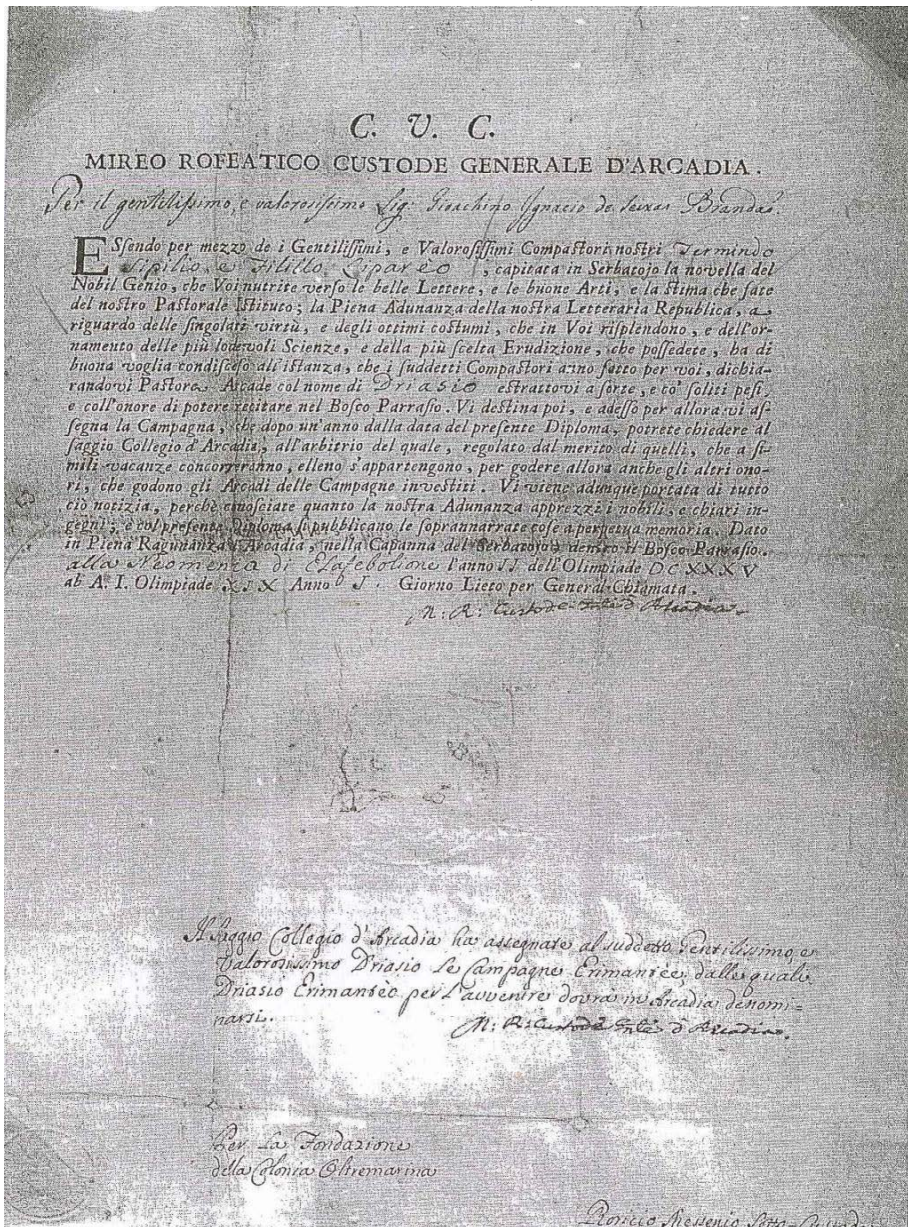 C. V. C.
MIREO ROFEATICO CUSTODE GENERALE D'ARCADIA.
Per il gentilissimo, e valorosissimo Sig: Gioachino Ignacio de Seixas Brandaõ.
ESsendo per mezzo de i Gentilissimi, e Valorosissimi Compastori nostri Termindo
Sipilio, e Filillo Lipareo, capitata in Serbatojo la novella del
Nobil Genio, che Voi nutrite verso le belle Lettere, e le buone Arti, e la stima che fate
del nostro Pastorale Istituto; la Piena Adunanza della nostra Letteraria Republica, a
riguardo delle singolari virtù, e degli ottimi costumi, che in Voi risplendono, e dell'or-
namento delle più lodevoli Scienze, e della più scelta Erudizione, che possedete, ha di
buona voglia condisceso all'istanza, che i suddetti Compastori anno fatto per voi, dichia-
randovi Pastore Arcade col nome di Driasio estrattovi a sorte, e co' soliti pesi,
e coll'onore di potere recitare nel Bosco Parrasio. Vi destina poi, e adesso per allora vi as-
segna la Campagna, che dopo un'anno dalla data del presente Diploma, potrete chiedere al
saggio Collegio d'Arcadia, all'arbitrio del quale, regolato dal merito di quelli, che a si-
mili vacanze concorreranno, elleno s'appartengono, per godere allora anche gli altri ono-
ri, che godono gli Arcadi delle Campagne investiti. Vi viene adunque portata di tutto
ciò notizia, perchè conosciate quanto la nostra Adunanza apprezzi i nobili, e chiari in-
gegni; e col presente Diploma si pubblicano le soprannarrate cose a perpetua memoria. Dato
in Piena Ragunanza d'Arcadia, nella Capanna del Serbatojo dentro il Bosco Parrasio.
alla Neomenia di Elafebolione l'anno II dell'Olimpiade DCXXXV
ab A. I. Olimpiade XIX Anno I. Giorno Lieto per General Chiamata.
M: R: Custode Gnle d'Arcadia.
Il Saggio Collegio d'Arcadia ha assegnate al suddetto Gentilissimo, e
Valorosissimo Driasio le Campagne Erimantèe, dalle quali
Driasio Erimantèo per l'avvenire dovrà in Arcadia denomi-
narsi.
M: R: Custode Gnle d'Arcadia.
Per la Fondazione
della Colonia Oltremarina
Messenio Sotto